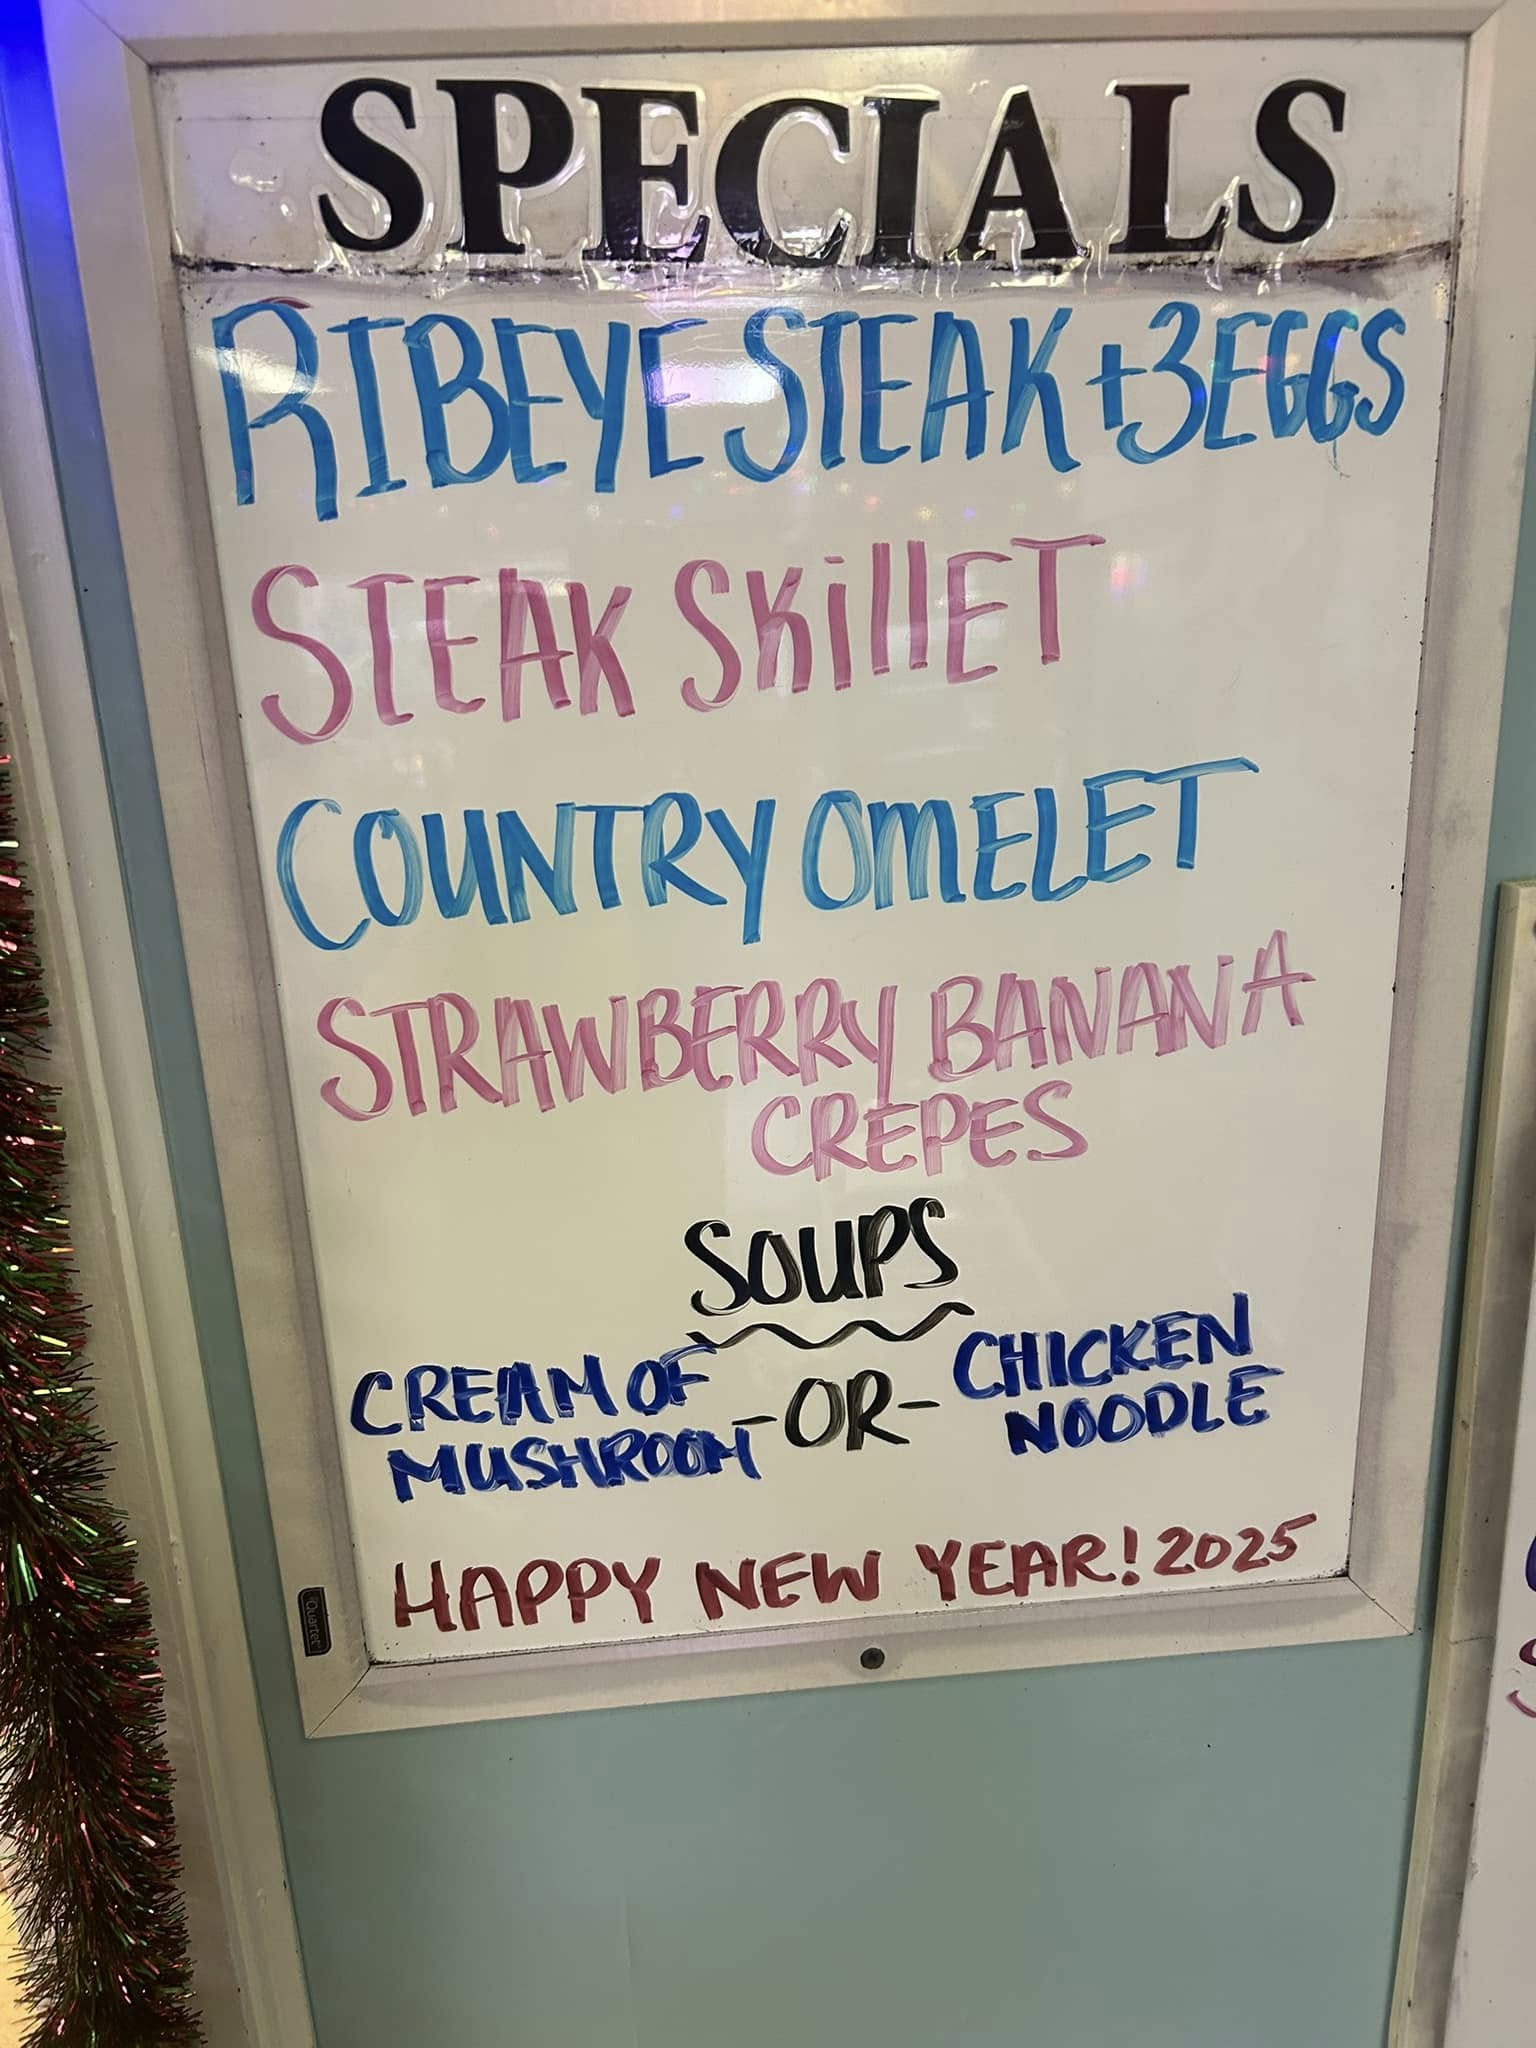 SPECIALS
RIBEYE STEAK + 3 EGGS
STEAK SKillET
COUNTRY OMELET
STRAWBERRY BANANA
CREPES
SOUPS
CREAM OF
MUSHROOM
-OR-
CHICKEN
NOODLE
HAPPY NEW YEAR! 2025
Quartet